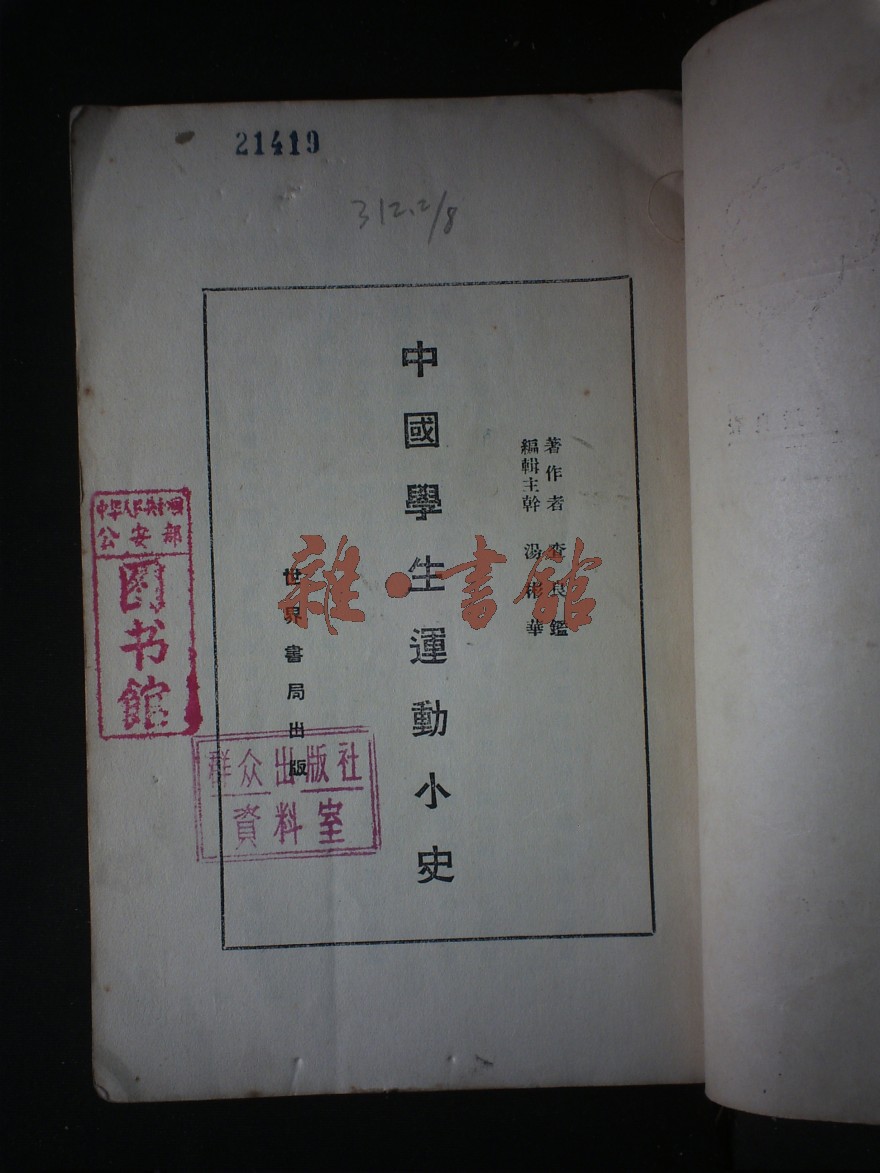 21419
312.2/8
著作者 查良鑑
編輯主幹 湯彬華
中國學生運動小史
世界書局出版
中华人民共和国
公安部
图书馆
群众出版社
資料室
雜·書館